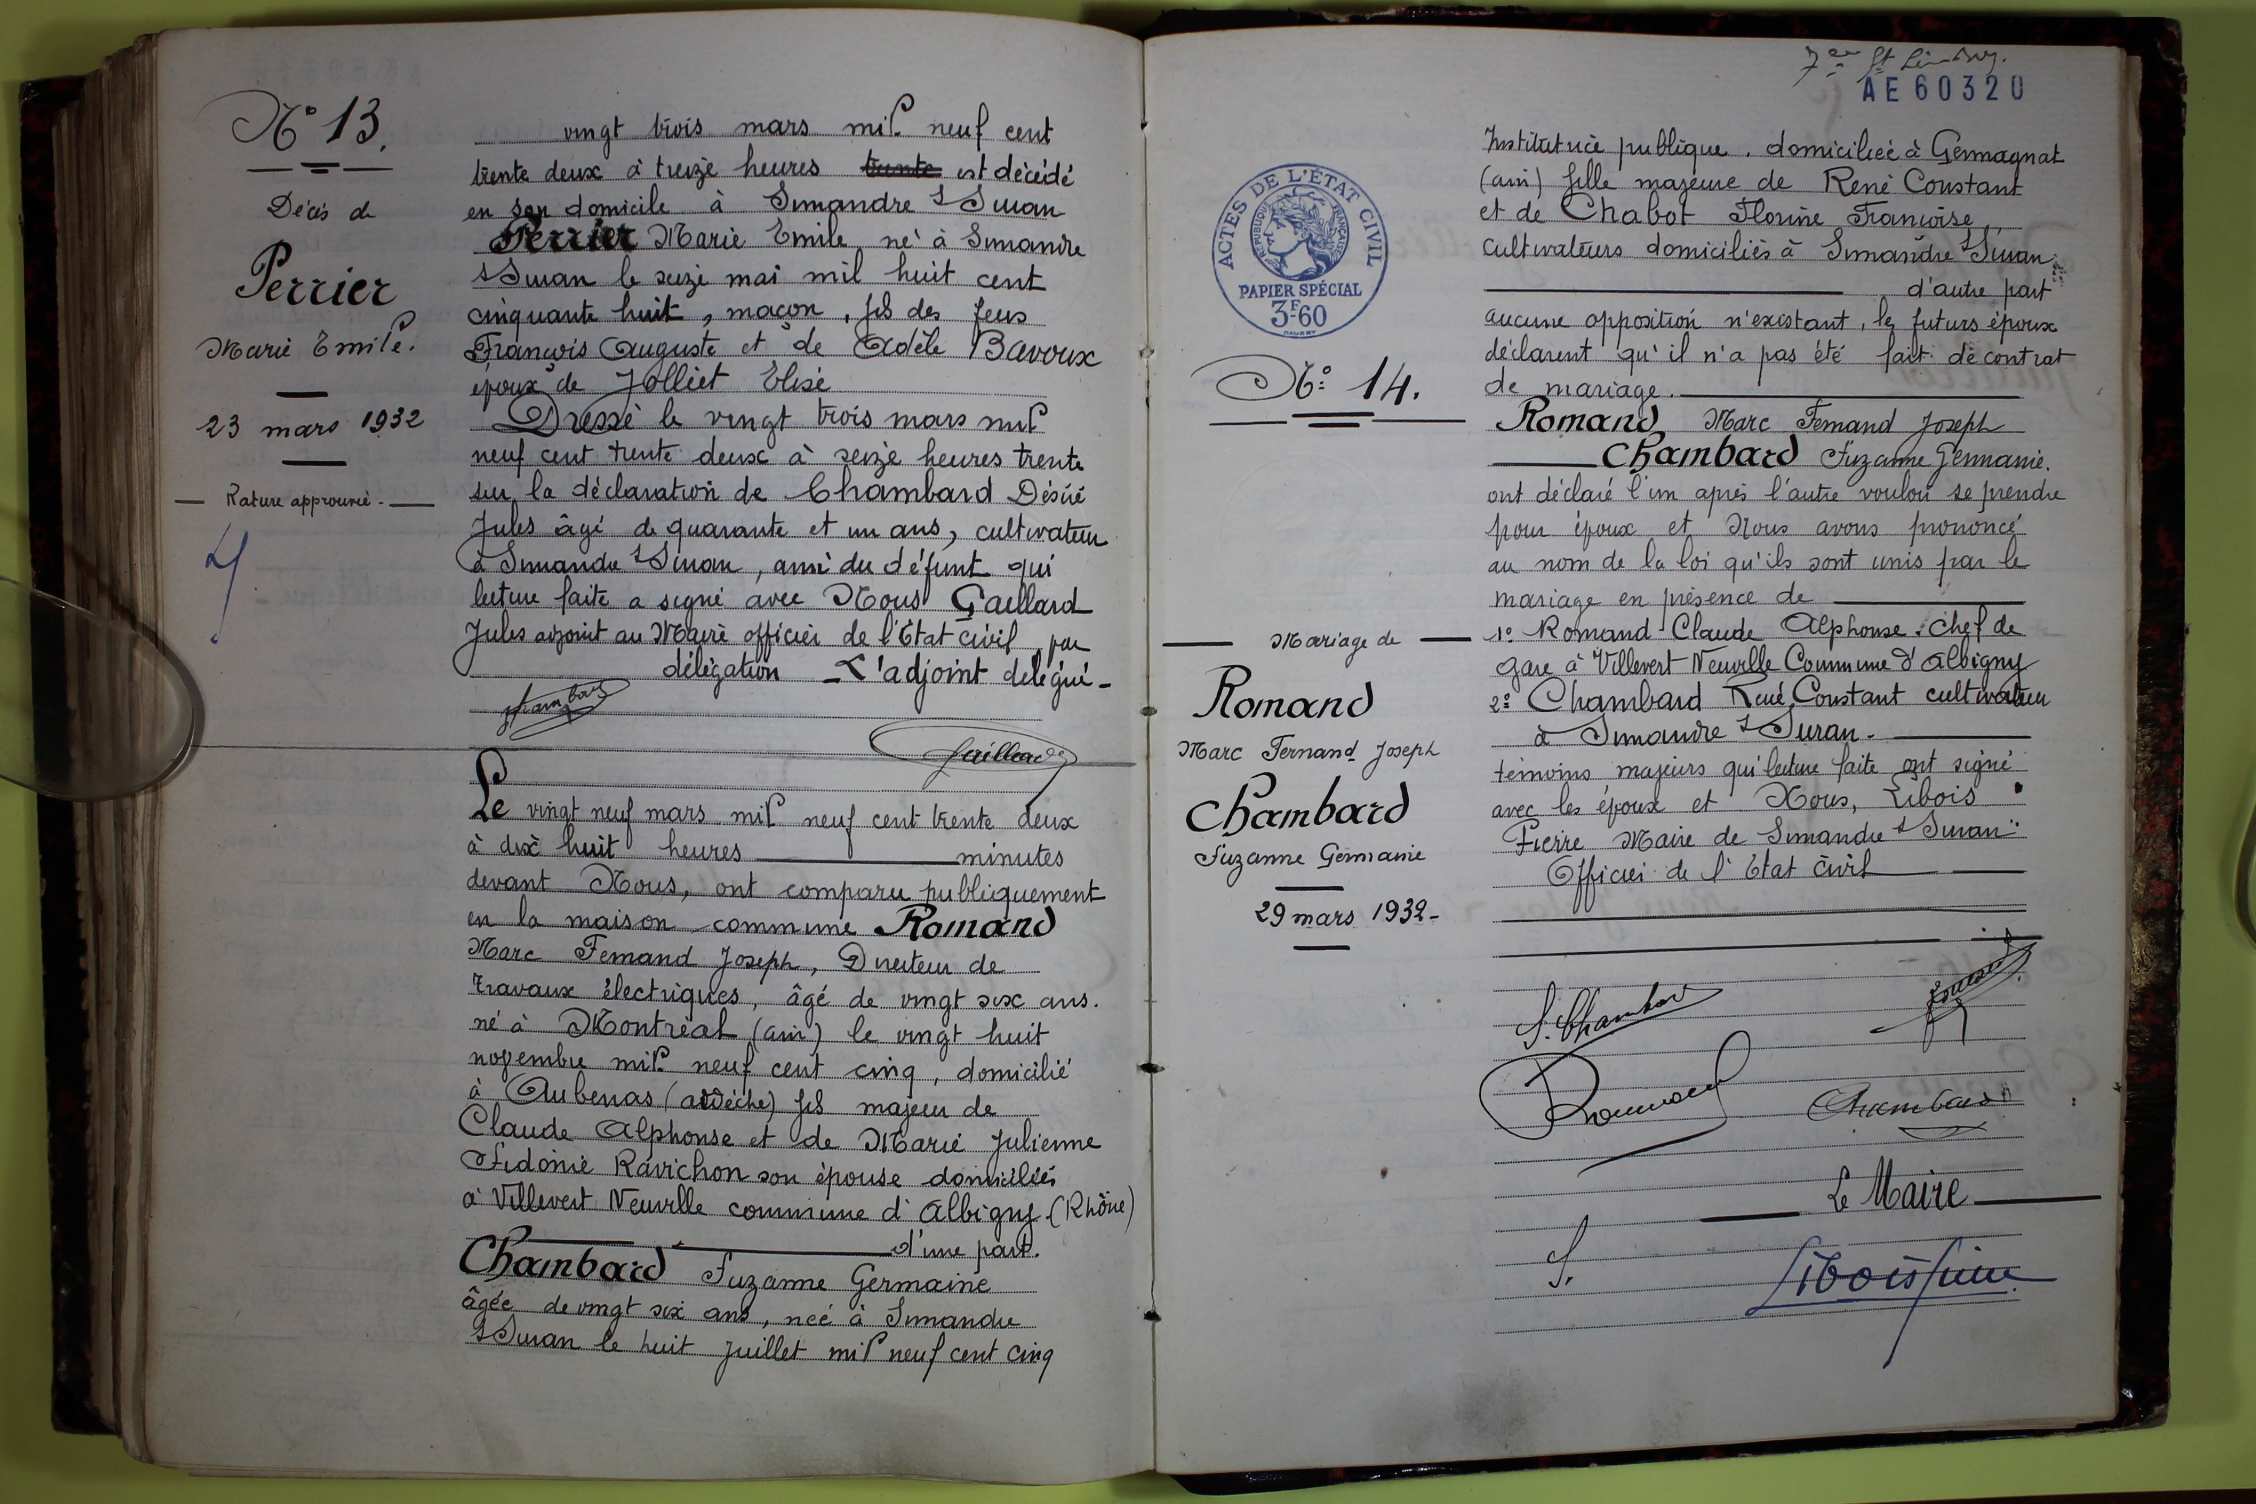 N° 13.
Décès de
Perrier
Marie Emile.
23 mars 1932
Rature approuvée
vingt trois mars mil neuf cent
trente deux à treize heures trente est décédé
en son domicile à Simandre s/ Suran
Perrier Marie Emile, né à Simandre
s/ Suran le seize mai mil huit cent
cinquante huit, maçon, fils des feus
François Auguste et de Adèle Bavoux
époux de Jolliet Elisé
Dressé le vingt trois mars mil
neuf cent trente deux à seize heures trente
sur la déclaration de Chambard Désiré
Jules âgé de quarante et un ans, cultivateur
à Simandre s/ Suran, ami du défunt qui
lecture faite a signé avec Nous Gaillard
Jules adjoint au Maire officier de l'Etat civil par
délégation - L'adjoint délégué -
Chambard
Gaillard
Le vingt neuf mars mil neuf cent trente deux
à dix huit heures minutes
devant Nous, ont comparu publiquement
en la maison commune Romand
Marc Fernand Joseph, Directeur de
Travaux Électriques, âgé de vingt six ans.
né à Montréal (ain) le vingt huit
novembre mil neuf cent cinq, domicilié
à Aubenas (ardèche) fils majeur de
Claude Alphonse et de Marie Julienne
Sidonie Ravichon son épouse domiciliés
à Villevert Neuville commune d'Albigny (Rhône)
d'une part.
Chambard Suzanne Germaine
âgée de vingt six ans, née à Simandre
s/ Suran le huit Juillet mil neuf cent cinq
AE60320
ACTES DE L'ÉTAT CIVIL
RÉPUBLIQUE FRANÇAISE
PAPIER SPÉCIAL
3F60
N° 14.
Mariage de
Romand
Marc Fernand Joseph
Chambard
Suzanne Germaine
29 mars 1932 -
Institutrice publique. domiciliée à Germagnat
(ain) fille majeure de René Constant
et de Chabot Florine Françoise
cultivateurs domiciliés à Simandre s/ Suran
d'autre part
aucune opposition n'existant, les futurs époux
déclarent qu'il n'a pas été fait de contrat
de mariage.
Romand Marc Fernand Joseph
Chambard Suzanne Germaine.
ont déclaré l'un après l'autre vouloir se prendre
pour époux et Nous avons prononcé
au nom de la loi qu'ils sont unis par le
mariage en présence de
1° Romand Claude Alphonse. chef de
gare à Villevert Neuville Commune d'Albigny
2° Chambard René Constant cultivateur
à Simandre s/ Suran.
témoins majeurs qui lecture faite ont signé
avec les époux et Nous, Libois
Pierre Maire de Simandre s/ Suran
Officier de l'Etat civil
S. Chambard
Romand
Romand
Chambard
Le Maire
S.
Libois Pierre